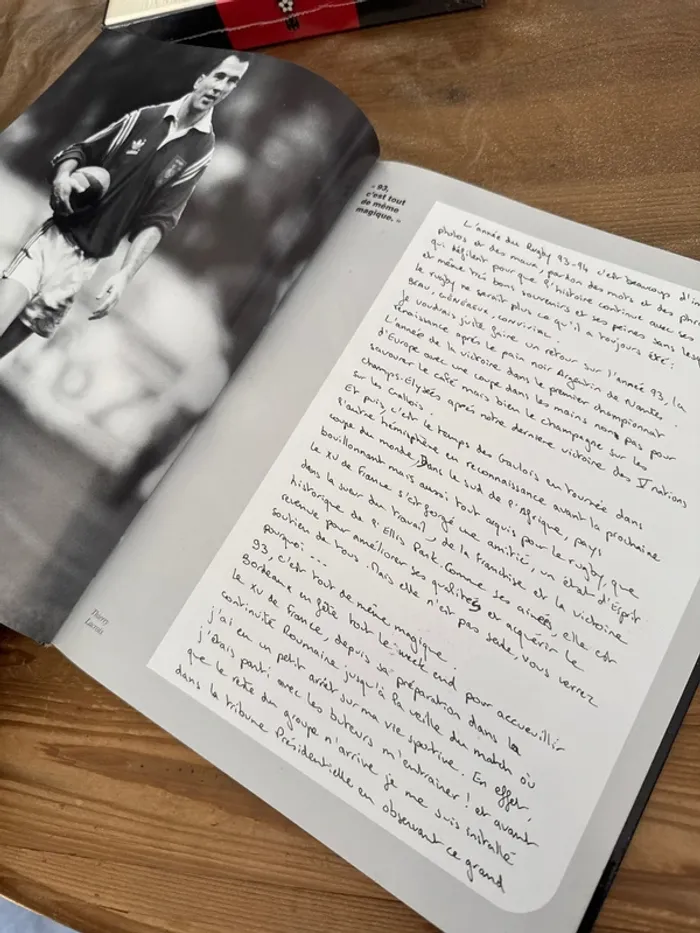 « 93,
c'est tout
de même
magique. »
L'année du Rugby 93-94 c'est beaucoup d'
photos et des maux, pardon des mots et des
qui défilent pour que l'histoire continue avec ses
et même très bons souvenirs et ses peines sans
le rugby ne serait plus ce qu'il a toujours été :
BEAU, GÉNÉREUX, CONVIVIAL.
Je voudrais juste faire un retour sur l'année 93, la
renaissance après le pain noir Argentin de Nantes.
L'année de la victoire dans le premier championnat
d'Europe avec une coupe dans les mains non pas pour
savourer le café mais bien le champagne sur les
champs-Elysées après notre dernière victoire des V nations
sur les Gallois.
Et puis, c'est le temps des Gaulois en tournée dans
l'autre hémisphère en reconnaissance avant la prochaine
coupe du monde. Dans le sud de l'Afrique, pays
bouillonnant mais aussi tout acquis pour le rugby, que
le XV de France s'est forgé une amitié, un état d'Esprit
dans la sueur du travail, de la franchise et la victoire
historique de l'Ellis Park. Comme ses aînées, elle est
revenue pour améliorer ses qualités et acquérir le
soutien de tous. Mais elle n'est pas seule, vous verrez
pourquoi ...
93, c'est tout de même magique.
Bordeaux en fête tout le week end pour accueillir
le XV de France, depuis sa préparation dans la
continuité Roumaine jusqu'à la veille du match où
j'ai eu un petit arrêt sur ma vie sportive. En effet,
j'étais parti avec les buteurs m'entraîner ! et avant
que le reste du groupe n'arrive je me suis installé
dans la tribune Présidentielle en observant ce grand
Thierry
Lacroix